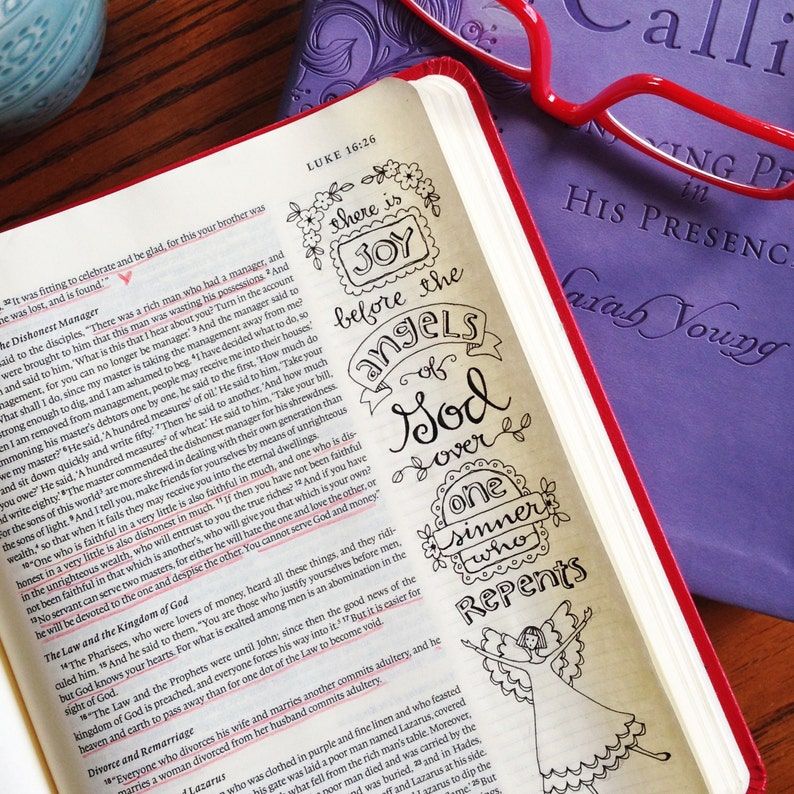 LUKE 16:26
³² It was fitting to celebrate and be glad, for this your brother was
was lost, and is found.’”
he Dishonest Manager
said to the disciples, “There was a rich man who had a manager, and
were brought to him that this man was wasting his possessions. ² And
and said to him, ‘What is this that I hear about you? Turn in the account
management, for you can no longer be manager.’ ³ And the manager said
what shall I do, since my master is taking the management away from me?
strong enough to dig, and I am ashamed to beg. ⁴ I have decided what to do, so
en I am removed from management, people may receive me into their houses.’
mmoning his master’s debtors one by one, he said to the first, ‘How much do
we my master?’ ⁶ He said, ‘A hundred measures of oil.’ He said to him, ‘Take your
and sit down quickly and write fifty.’ ⁷ Then he said to another, ‘And how much
you owe?’ He said, ‘A hundred measures of wheat.’ He said to him, ‘Take your bill,
nd write eighty.’ ⁸ The master commended the dishonest manager for his shrewdness.
For the sons of this world are more shrewd in dealing with their own generation than
the sons of light. ⁹ And I tell you, make friends for yourselves by means of unrighteous
wealth, so that when it fails they may receive you into the eternal dwellings.
¹⁰ “One who is faithful in a very little is also faithful in much, and one who is dis-
honest in a very little is also dishonest in much. ¹¹ If then you have not been faithful
in the unrighteous wealth, who will entrust to you the true riches? ¹² And if you have
not been faithful in that which is another’s, who will give you that which is your own?
¹³ No servant can serve two masters, for either he will hate the one and love the other, or
he will be devoted to the one and despise the other. You cannot serve God and money.”
The Law and the Kingdom of God
¹⁴ The Pharisees, who were lovers of money, heard all these things, and they ridi-
culed him. ¹⁵ And he said to them, “You are those who justify yourselves before men,
but God knows your hearts. For what is exalted among men is an abomination in the
sight of God.
¹⁶ “The Law and the Prophets were until John; since then the good news of the
kingdom of God is preached, and everyone forces his way into it. ¹⁷ But it is easier for
heaven and earth to pass away than for one dot of the Law to become void.
Divorce and Remarriage
¹⁸ “Everyone who divorces his wife and marries another commits adultery, and he
who marries a woman divorced from her husband commits adultery.
and Lazarus
who was clothed in purple and fine linen and who feasted
his gate was laid a poor man named Lazarus, covered
what fell from the rich man’s table. Moreover,
poor man died and was carried by the
and was buried, ²³ and in Hades,
and Lazarus at
to dip the
there is
JOY
before the
angels
of
God
over
one
sinner
who
REPents
Calli
ENJOYING PE
in
HIS PRESENC
Sarah Young